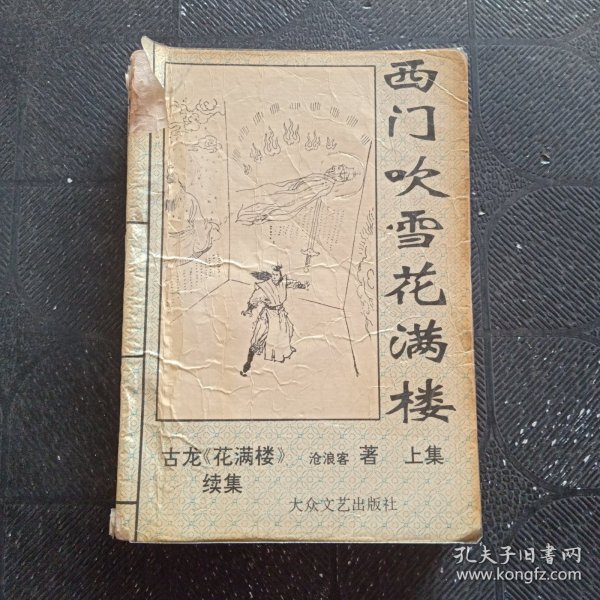 西门吹雪花满楼
古龙《花满楼》
续集
沧浪客 著 上集
大众文艺出版社
孔夫子旧书网
www.kongfz.com